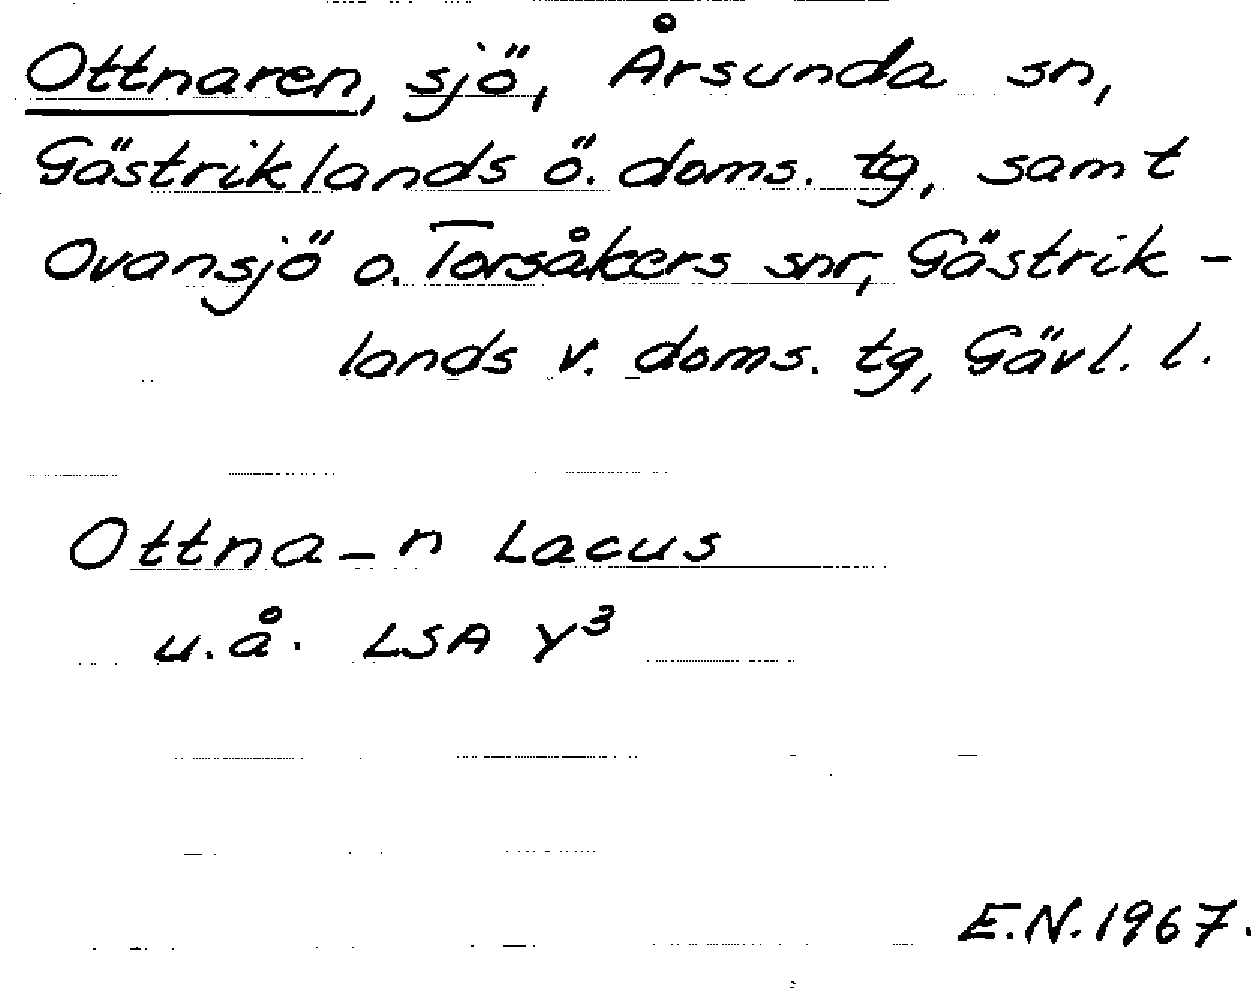 Ottnaren, sjö, Årsunda sn,
Gästriklands ö. doms. tg, samt
Ovansjö o. Torsåkers snr, Gästrik-
lands v. doms. tg, Gävl. l.
Ottna-n Lacus
u.å. LSA Y³
E.N. 1967.